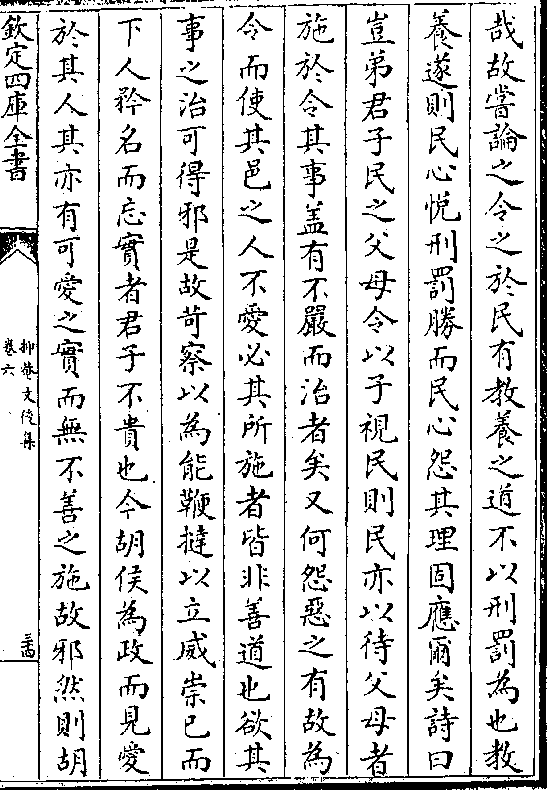 哉故嘗論之令之於民有教養之道不以刑罰為也教
養遂則民心悅刑罰勝而民心怨其理固應爾矣詩曰
豈弟君子民之父母令以子視民則民亦以待父母者
施於令其事盖有不嚴而治者矣又何怨惡之有故為
令而使其邑之人不愛必其所施者皆非善道也欲其
事之治可得邪是故苛察以為能鞭撻以立威崇已而
下人矜名而忘實者君子不貴也今胡侯為政而見愛
於其人其亦有可愛之實而無不善之施故邪然則胡
欽定四庫全書
抑菴文後集
卷六